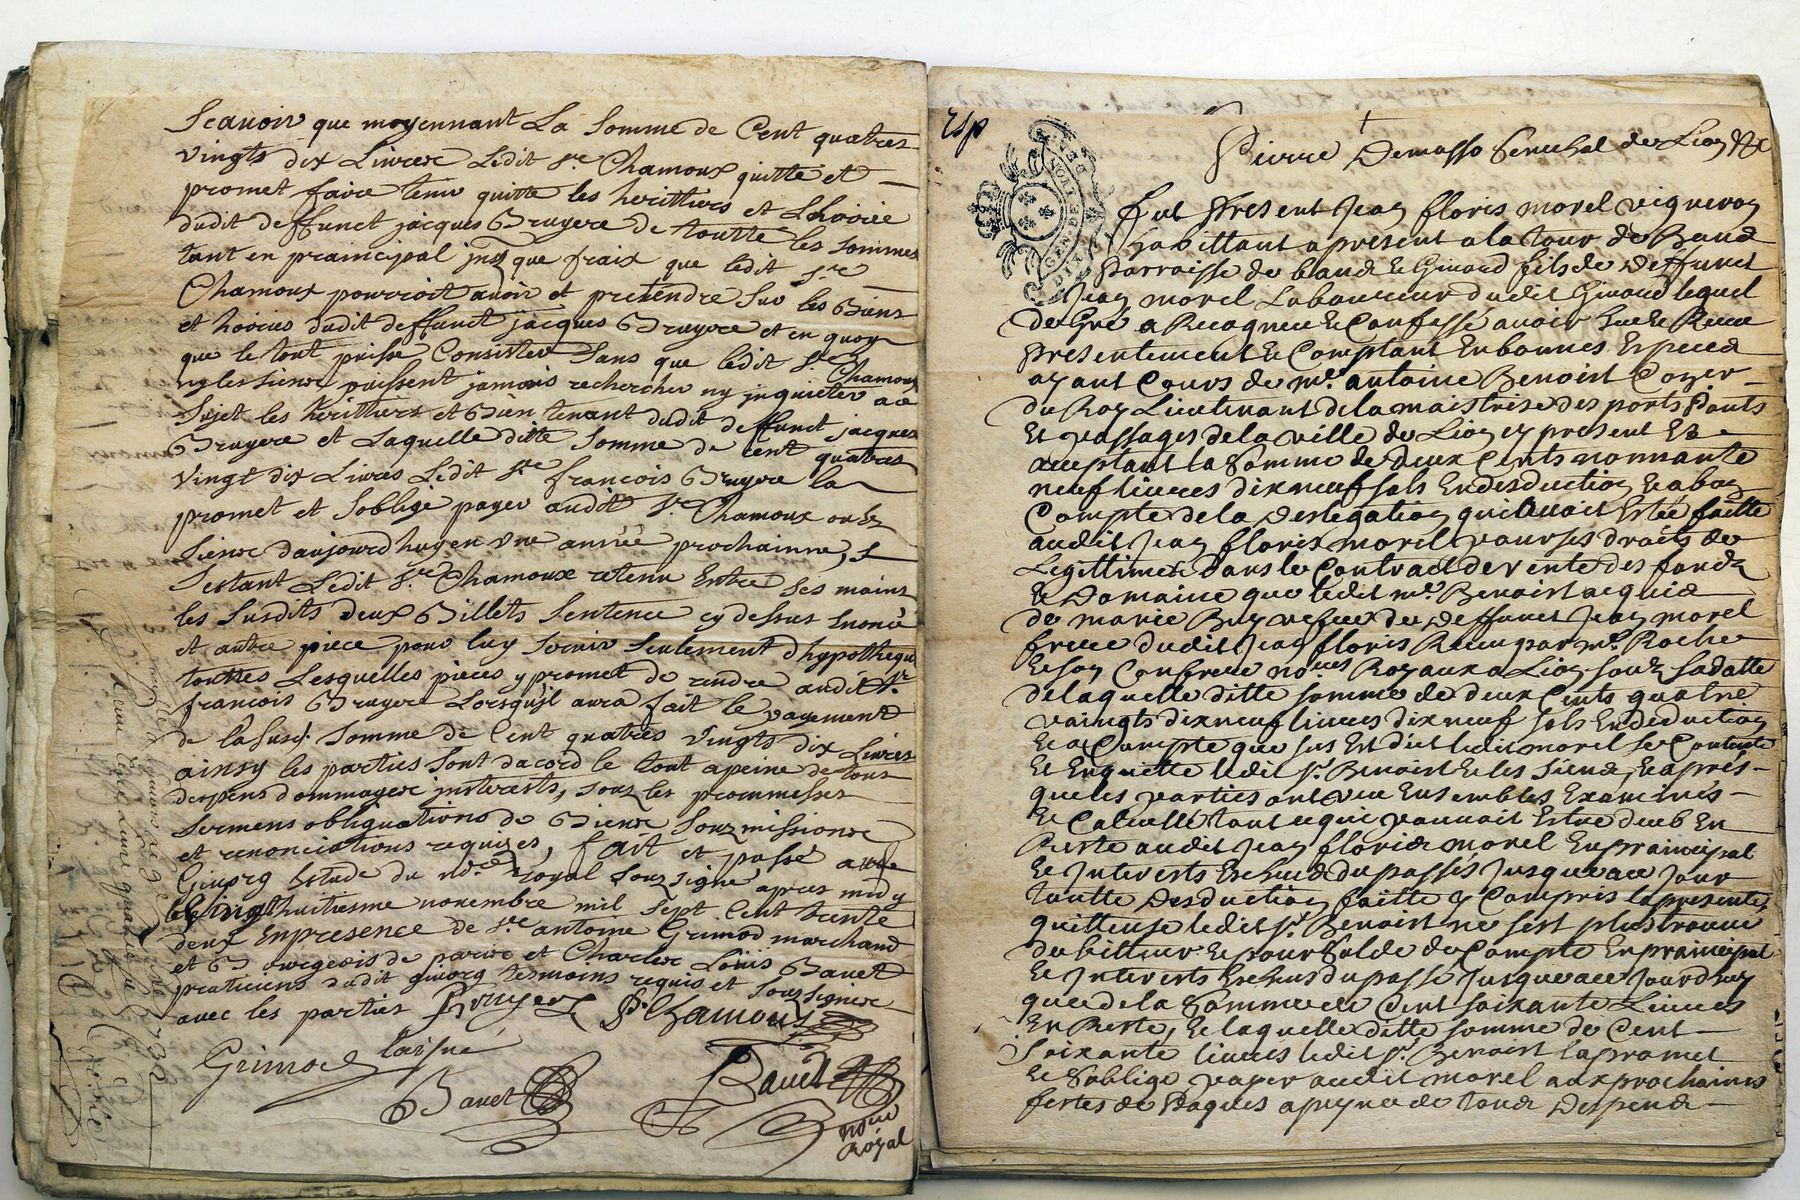 Scavoir que moyennant La Somme de Cent quatres
vingts dix Livres Ledit Sr. Chamoux quitte et
promet faire tenir quitte les heritiers et Lhoirie
dudit deffunct jacques Bruyere de toutte les sommes
tant en praincipal que fraix que ledit Sr
Chamoux pourroit avoir et pretendre sur les Biens
et hoiries dudit deffunct jacques Bruyere et en quoy
que le tout puisse Consister Sans que ledit Sr. Chamoux
ny les siens puissent jamais rechercher ny jnquieter a ce
Sujet les heritiers et Bien tenant dudit deffunct jacques
Bruyere et Laquelle ditte Somme de Cent quatres
vingt dix Livres Ledit Sr francois Bruyere la
promet et soblige payer audit Sr. Chamoux ou ez
siens daujourdhuy en une année prochainne,
Sestant Ledit Sr. Chamoux retenu Entre ses mains
les susdits deux Billets Sentence cy dessus
et autre piece pour luy servir seulement dhypotheque
touttes Lesquelles pieces y promet de rendre audit Sr
francois Bruyere Lorsqu'jl aura fait le payement
de la susd. somme de Cent quatres vingts dix Livres
ainsy les parties sont dacord le tout apeine de tous
despens dommages jnsterests, sous les prommesses
sermens obliguations de Biens souzmissions
et renonciations requises, fait et passé
Givorg Estude du no.re royal souzsigné apres midy
le vingthuitiesme novembre mil sept Cent trente
deux En presence de Sr antoine Grimod marchand
et Bourgeois de paris et Charles Louis Bavet
praticiens dudit givorg tesmoins requis et souzsignés
avec les parties Bruyere Chamoux
Grimod laisné
Bavet Bavet
no.re
Royal
Esp
Pierre Demasso Senechal de Lion &c
GEN. DE LION
fut Present Jean floris morel vigneron
habittant apresent a la tour de
Parroisse de fils de deffunct
Jean morel Laboureur dudit lequel
de Gré a Recogneu & Confessé avoir heu & Receu
Presentement & Comptant En bonnes Especes
ayant Cours de me. antoine Benoist Conser
du Roy Lieutenant de la maistrise des ports Ponts
Et passages de la ville de Lion cy present Et
acceptant la somme de deux Cents nonnante
neuf livres dix neuf sols En desduction & a bon
Compte de la deslegation qui Avoit Estéé faitte
audit Jean floris morel pour ses droits de
Legittimes dans le Contract de vente des fonds
& Domaine que ledit me. Benoist acquis
de marie veufve du deffunct Jean morel
frere dudit Jean floris Receu par me. Roche
& son Confrere no.res Royaux a Lion souz sa datte
de laquelle ditte somme de deux Cents quatre
vaingts dix neuf livres dix neuf sols En deduction
& a Compte que sus Est dict ledit morel se Contente
Et En quitte ledit Sr. Benoist & les siens, & apres
que les parties ont veu Ensembles Examinés
& Calculle tout ce qui pouvoit Estre deub En
Reste audit Jean floris morel En praincipal
& Interests Escheus du passés Jusques a ce Jour
toutte desduction faitte y Compris la presente
quittense ledit Sr. Benoist ne sest plus trouvé
debitteur & pour solde de Compte En praincipal
& Interests Escheus du passé Jusques a ce Jourdhuy
que de la somme de Cent soixante Livres
En Reste, & laquelle ditte somme de Cent
soixante livres ledit Sr. Benoist la promet
& soblige payer audit morel aux prochaines
festes de Paques a peyne de tous despens